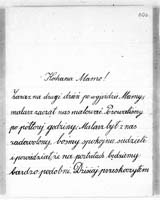 Kochana Mamo!
Zaraz na drugi dzień po wyjeździe Mamy,
malarz zaczął nas malować. Pozowaliśmy
po półtorej godziny. Malarz był z nas
zadowolony, bośmy spokojnie siedzieli
i powiedział, że na portretach będziemy
bardzo podobni. Dzisiaj